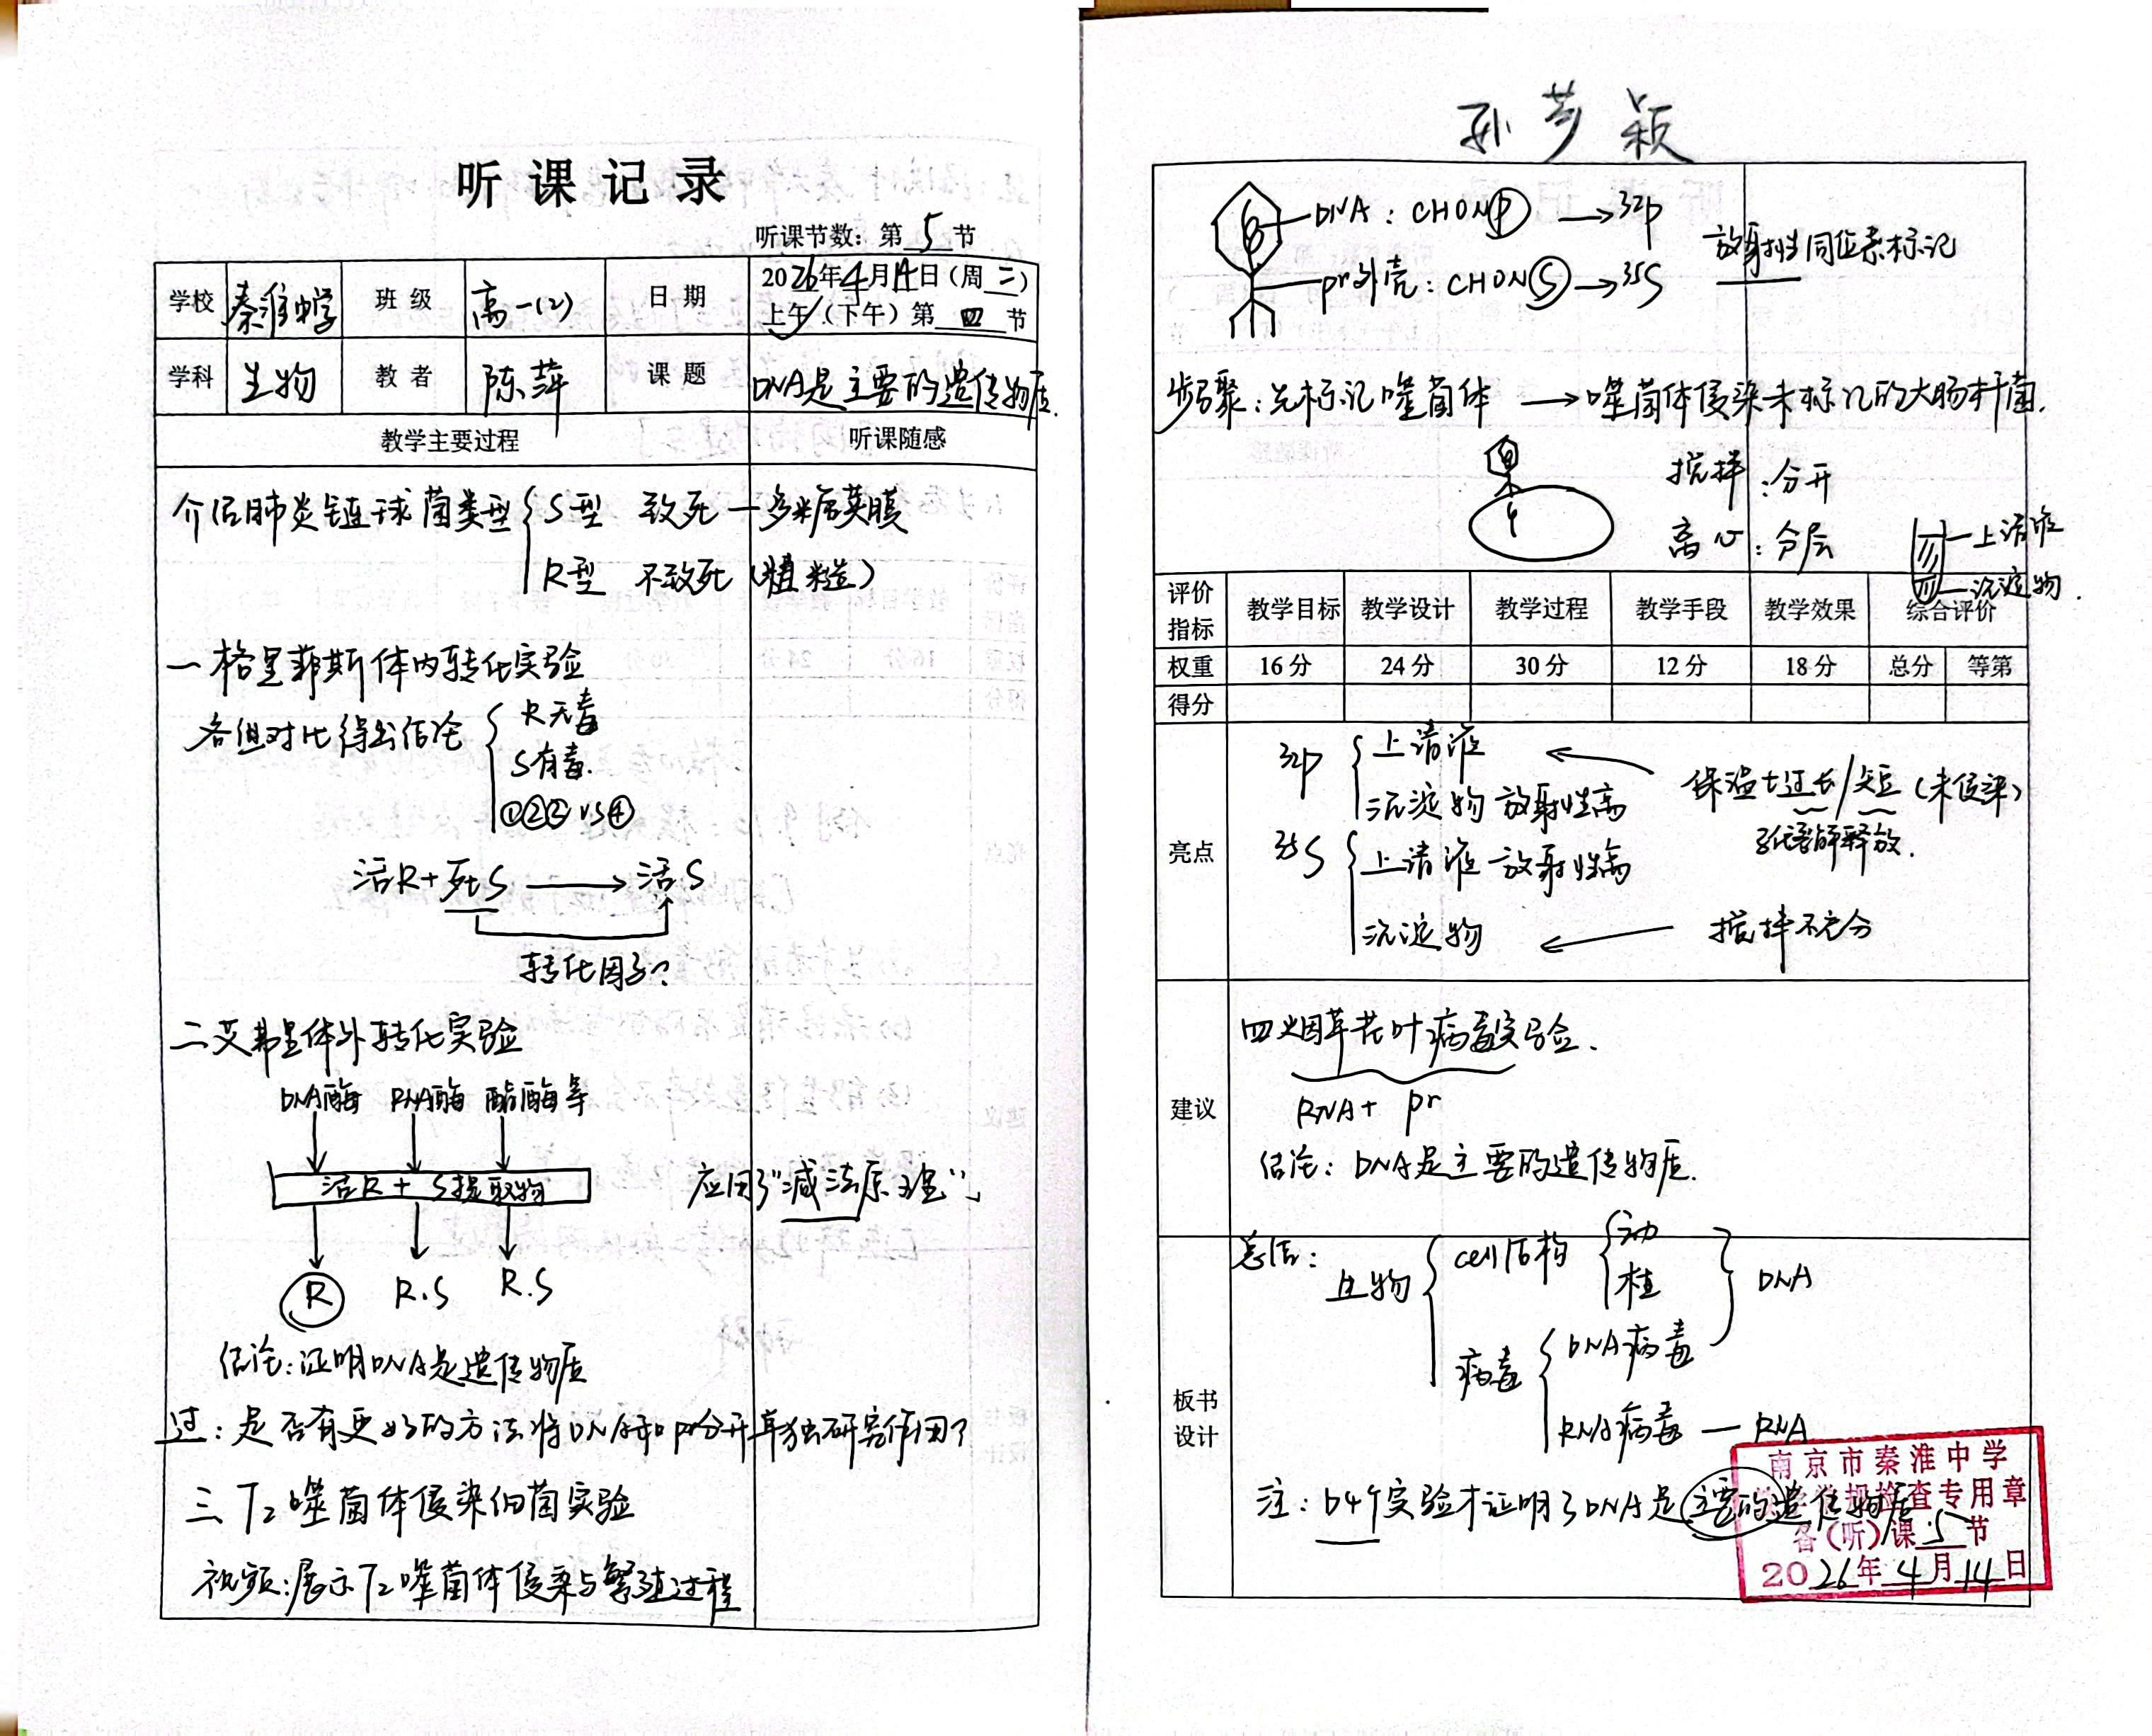 听课记录
听课节数：第 5 节
学校 秦淮中学 班级 高一(2) 日期 2026年4月14日（周二）
上午（下午）第 四 节
学科 生物 教者 陈萍 课题 DNA是主要的遗传物质.
教学主要过程 听课随感
介绍肺炎链球菌类型 S型 致死 — 多糖荚膜
R型 不致死（粗糙）
一 格里菲斯体内转化实验
各组对比得出结论 R无毒
S有毒.
①②③ vs ④
活R + 死S → 活S
转化因子？
二 艾弗里体外转化实验
DNA酶 RNA酶 酯酶等
活R + S提取物
应用了"减法原理"
R R.S R.S
结论：证明DNA是遗传物质
过：是否有更好的方法将DNA和pr分开单独研究作用？
三 T2噬菌体侵染细菌实验
视频：展示T2噬菌体侵染与繁殖过程
孙梦颖
DNA：CHONP → 32P
放射性同位素标记
pr外壳：CHONS → 35S
步骤：先标记噬菌体 → 噬菌体侵染未标记的大肠杆菌.
搅拌：分开
离心：分层
上清液
沉淀物.
评价指标 教学目标 教学设计 教学过程 教学手段 教学效果 综合评价
权重 16分 24分 30分 12分 18分 总分 等第
得分
亮点
32P 上清液 ← 保温t过长/过短（未侵染）
沉淀物 放射性高 子代裂解释放.
35S 上清液 放射性高
沉淀物 ← 搅拌不充分
建议
四 烟草花叶病毒实验.
RNA + pr
结论：DNA是主要的遗传物质.
板书设计
总结：生物 cell结构 动
植 DNA
病毒 DNA病毒
RNA病毒 — RNA
注：b4个实验才证明了DNA是主要的遗传物质.
南京市秦淮中学
检查专用章
备(听)课 5 节
2026年4月14日